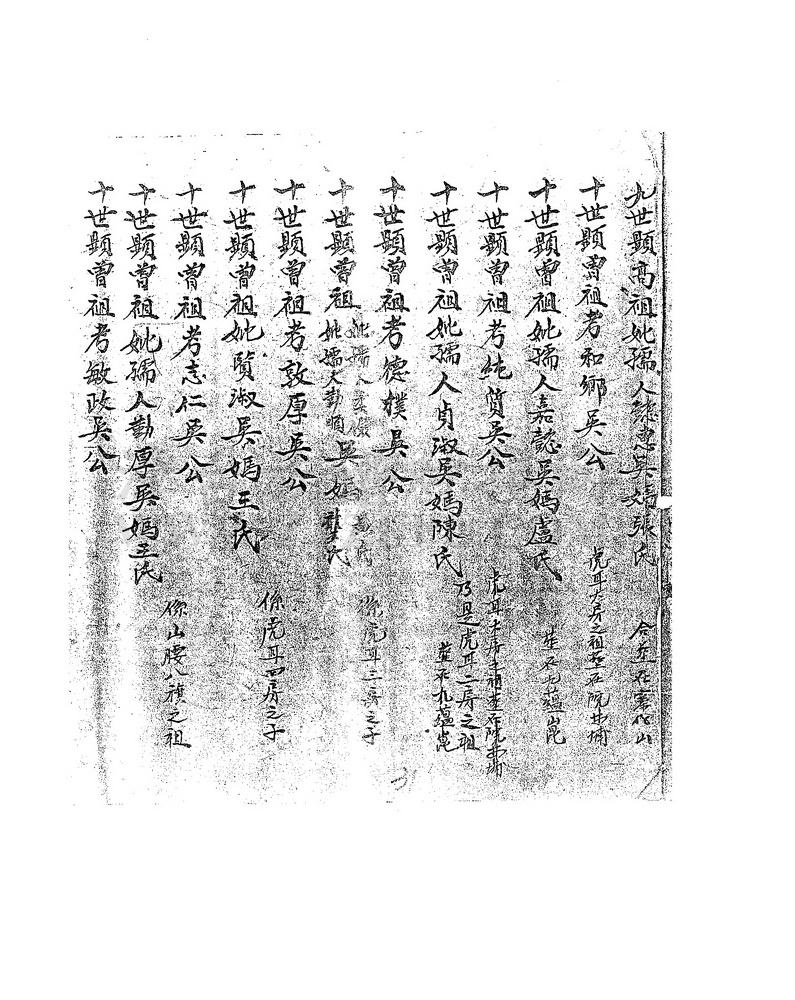 九世顯高祖妣孺人懿惠吳媽張氏 合塟在寨後山
十世顯曾祖考和鄉吳公 虎耳大房之祖塟在院埔
十世顯曾祖妣孺人嘉懿吳媽盧氏 塟在九蘊崑
十世顯曾祖考純質吳公 虎耳 房之祖塟在院 埔
乃是虎耳二房之祖
十世顯曾祖妣孺人貞淑吳媽陳氏 塟在九蘊崑
十世顯曾祖考德樸吳公 係虎耳三房之子
十世顯曾祖妣孺人 妣孺人勤順吳媽龔氏 氏
十世顯曾祖考敦厚吳公 係虎耳四房之子
十世顯曾祖妣賢淑吳媽王氏
十世顯曾祖考志仁吳公 係山腰八旗之祖
十世顯曾祖妣孺人勤厚吳媽王氏
十世顯曾祖考敏政吳公